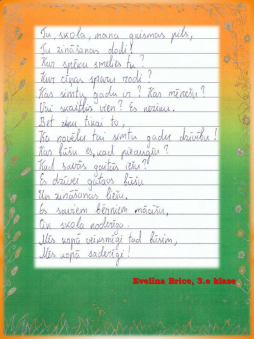 Tu, skola, mana gaismas pils,
Tu zināšanas dodi!
Kur spēku smelies tu?
Kur cīņas sparus rodi?
Kas simtu gadu ir? Kas mēnešu?
Vai skaitlis vien? Es nezinu.
Bet zinu tikai to,
Ko novēlu tai simtu gadu dzīvību!
Kas būšu es, kad pieaugšu?
Kad savās gaitās iešu?
Es dzīvei gatavs būšu
Un zināšanas
Es saviem bērniem mācīšu,
Ka skola noderīga.
Mēs kopā veiksmīgi tad būsim,
Mēs kopā saderīgi!
Evelina Brice, 3.e klase